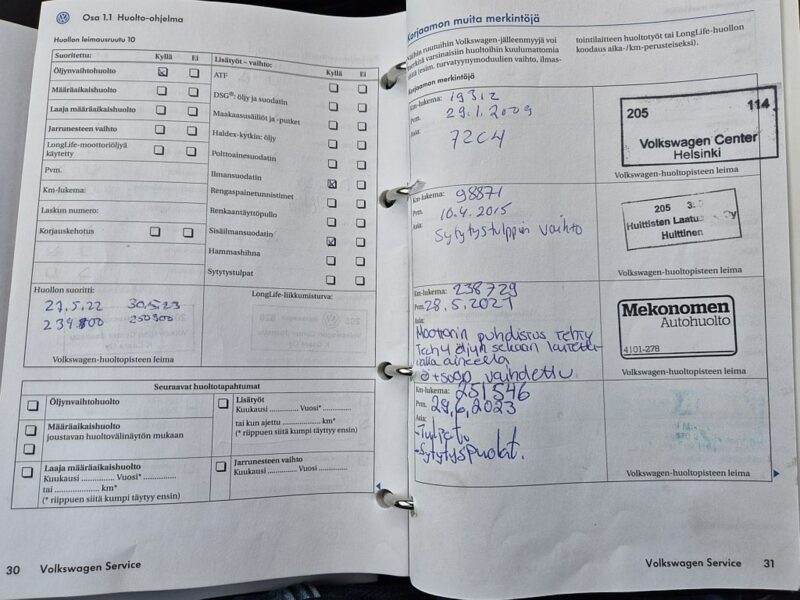 Osa 1.1 Huolto-ohjelma
Huollon leimausruutu 10
Suoritettu: Kyllä Ei
Öljynvaihtohuolto
Määräaikaishuolto
Laaja määräaikaishuolto
Jarrunesteen vaihto
LongLife-moottoriöljyä
käytetty
Pvm.
Km-lukema:
Laskun numero:
Korjauskehotus
Lisätyöt – vaihto: Kyllä Ei
ATF
DSG®: öljy ja suodatin
Maakaasusäiliöt ja -putket
Haldex-kytkin: öljy
Polttoainesuodatin
Ilmansuodatin
Rengaspainetunnistimet
Renkaantäyttöpullo
Sisäilmansuodatin
Hammashihna
Sytytystulpat
Huollon suoritti:
27.5.22 30.5.23
239800 250900
Volkswagen-huoltopisteen leima
LongLife-liikkumisturva:
Seuraavat huoltotapahtumat
Öljynvaihtohuolto
Määräaikaishuolto
joustavan huoltovälinäytön mukaan
Laaja määräaikaishuolto
Kuukausi .............. Vuosi* ..............
tai .................... km*
(* riippuen siitä kumpi täyttyy ensin)
Lisätyöt
Kuukausi .............. Vuosi* ..............
tai kun ajettu .................... km*
(* riippuen siitä kumpi täyttyy ensin)
Jarrunesteen vaihto
Kuukausi .............. Vuosi ..............
30 Volkswagen Service
Korjaamon muita merkintöjä
Näihin ruutuihin Volkswagen-jälleenmyyjä voi
merkitä varsinaisiin huoltoihin kuulumattomia
töitä (esim. turvatyynymoduulien vaihto, ilmas-
tointilaitteen huoltotyöt tai LongLife-huollon
koodaus aika-/km-perusteiseksi).
Korjaamon merkintöjä
Km-lukema: 19312
Pvm. 29.1.2009
Asia: 72C4
205 114
Volkswagen Center
Helsinki
Volkswagen-huoltopisteen leima
Km-lukema: 98871
Pvm. 10.4.2015
Asia:
Sytytystulppien vaihto
205
Huittisten Laatu Oy
Huittinen
Volkswagen-huoltopisteen leima
Km-lukema: 238729
Pvm. 28.5.2021
Asia:
Moottorin puhdistus tehty
öljyn sekaan
aineella
vaihdettu
Mekonomen
Autohuolto
4101-278
Volkswagen-huoltopisteen leima
Km-lukema: 251546
Pvm. 29.6.2023
Asia:
-Tulpat.
-Sytytyspuolat.
Volkswagen-huoltopisteen leima
Volkswagen Service 31